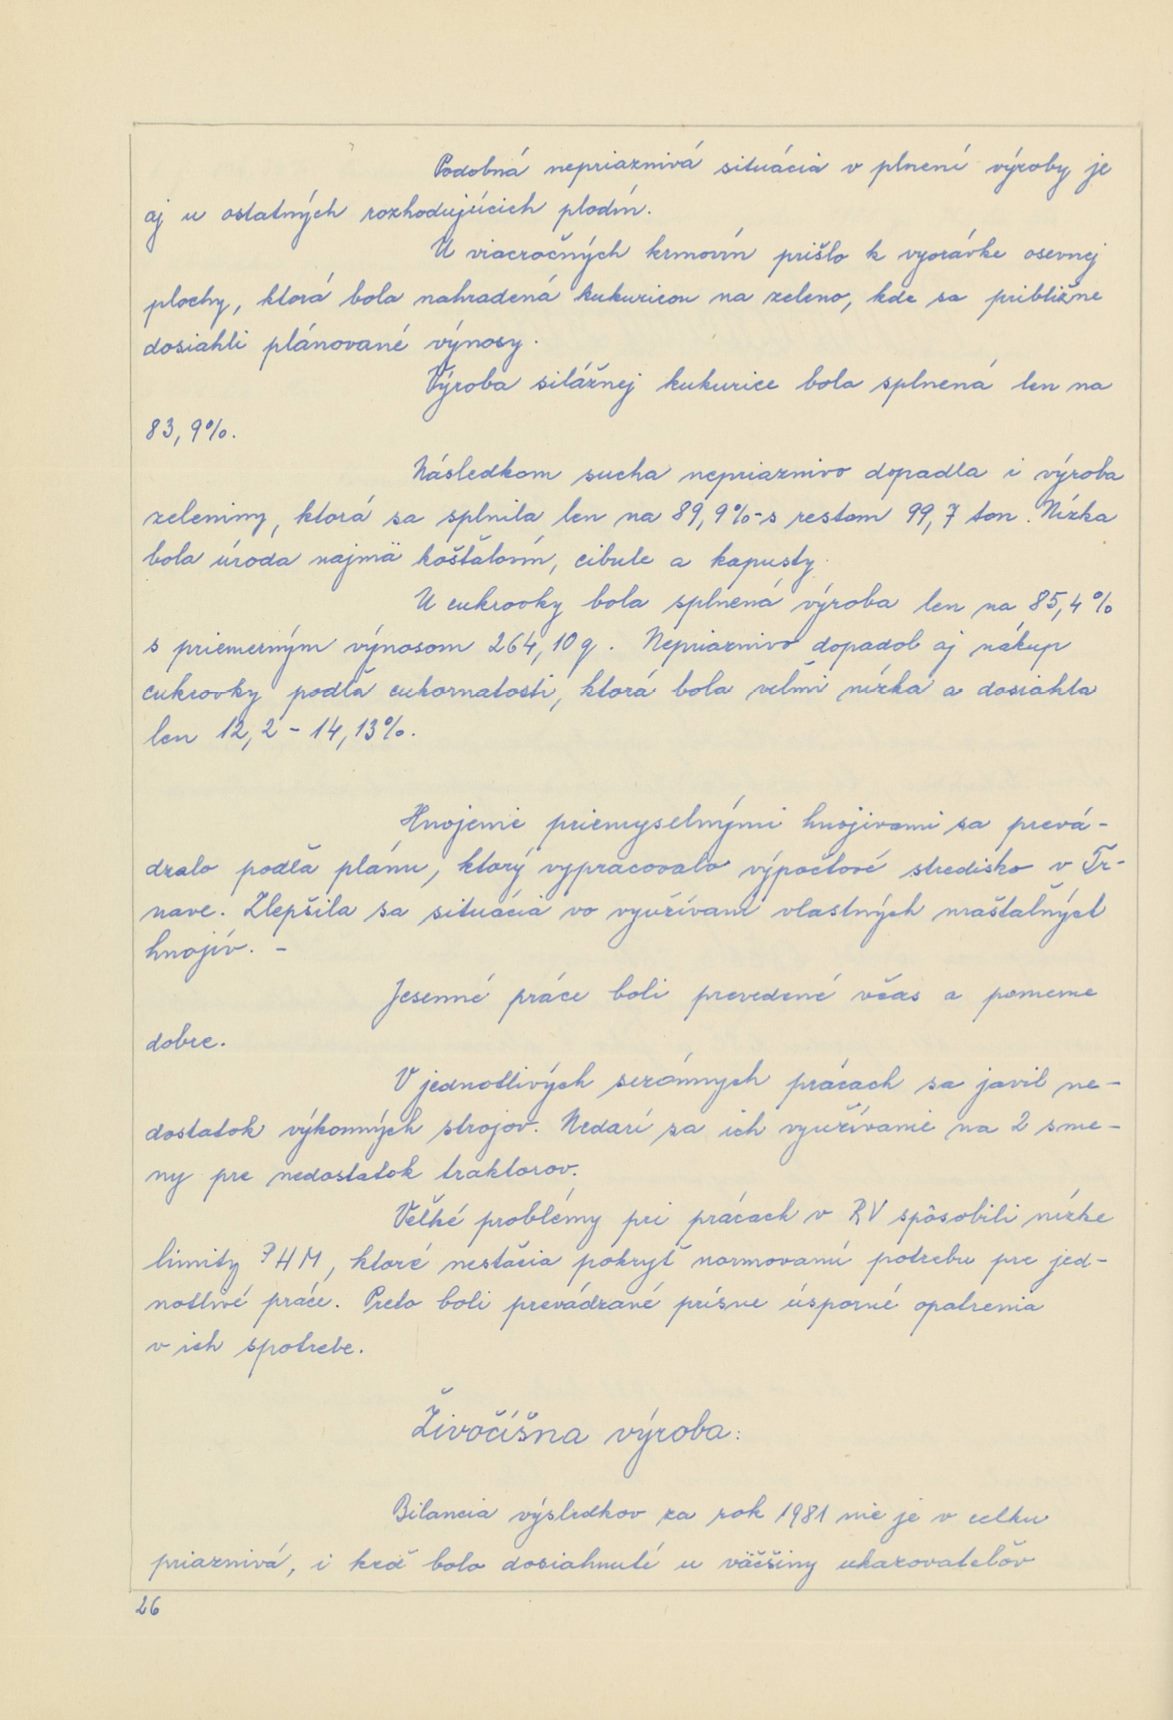 Podobná nepriaznivá situácia v plnení výroby je
aj u ostatných rozhodujúcich plodín.
U viacročných krmovín prišlo k vyorávke osevnej
plochy, ktorá bola nahradená kukuricou na zeleno, kde sa približne
dosiahli plánované výnosy.
Výroba silážnej kukurice bola splnená len na
83,9%.
Následkom sucha nepriaznivo dopadla i výroba
zeleniny, ktorá sa splnila len na 89,9%-s restom 99,7 ton. Nízka
bola úroda najmä košťálovín, cibule a kapusty.
U cukrovky bola splnená výroba len na 85,4%
s priemerným výnosom 264,10 q. Nepriaznivo dopadol aj nákup
cukrovky podľa cukornatosti, ktorá bola veľmi nízka a dosiahla
len 12,2 - 14,13%.
Hnojenie priemyselnými hnojivami sa prevá-
dzalo podľa plánu, ktorý vypracovalo výpočtové stredisko v Tr-
nave. Zlepšila sa situácia vo využívaní vlastných maštaľných
hnojív. -
Jesenné práce boli prevedené včas a pomerne
dobre.
V jednotlivých sezónnych prácach sa javil ne-
dostatok výkonných strojov. Nedarí sa ich využívanie na 2 sme-
ny pre nedostatok traktorov.
Veľké problémy pri prácach v RV spôsobili nízke
limity PHM, ktoré nestačia pokryť normovanú potrebu pre jed-
notlivé práce. Preto boli prevádzané prísne úsporné opatrenia
v ich spotrebe.
Živočíšna výroba:
Bilancia výsledkov za rok 1981 nie je v celku
priaznivá, i keď bolo dosiahnuté u väčšiny ukazovateľov
26